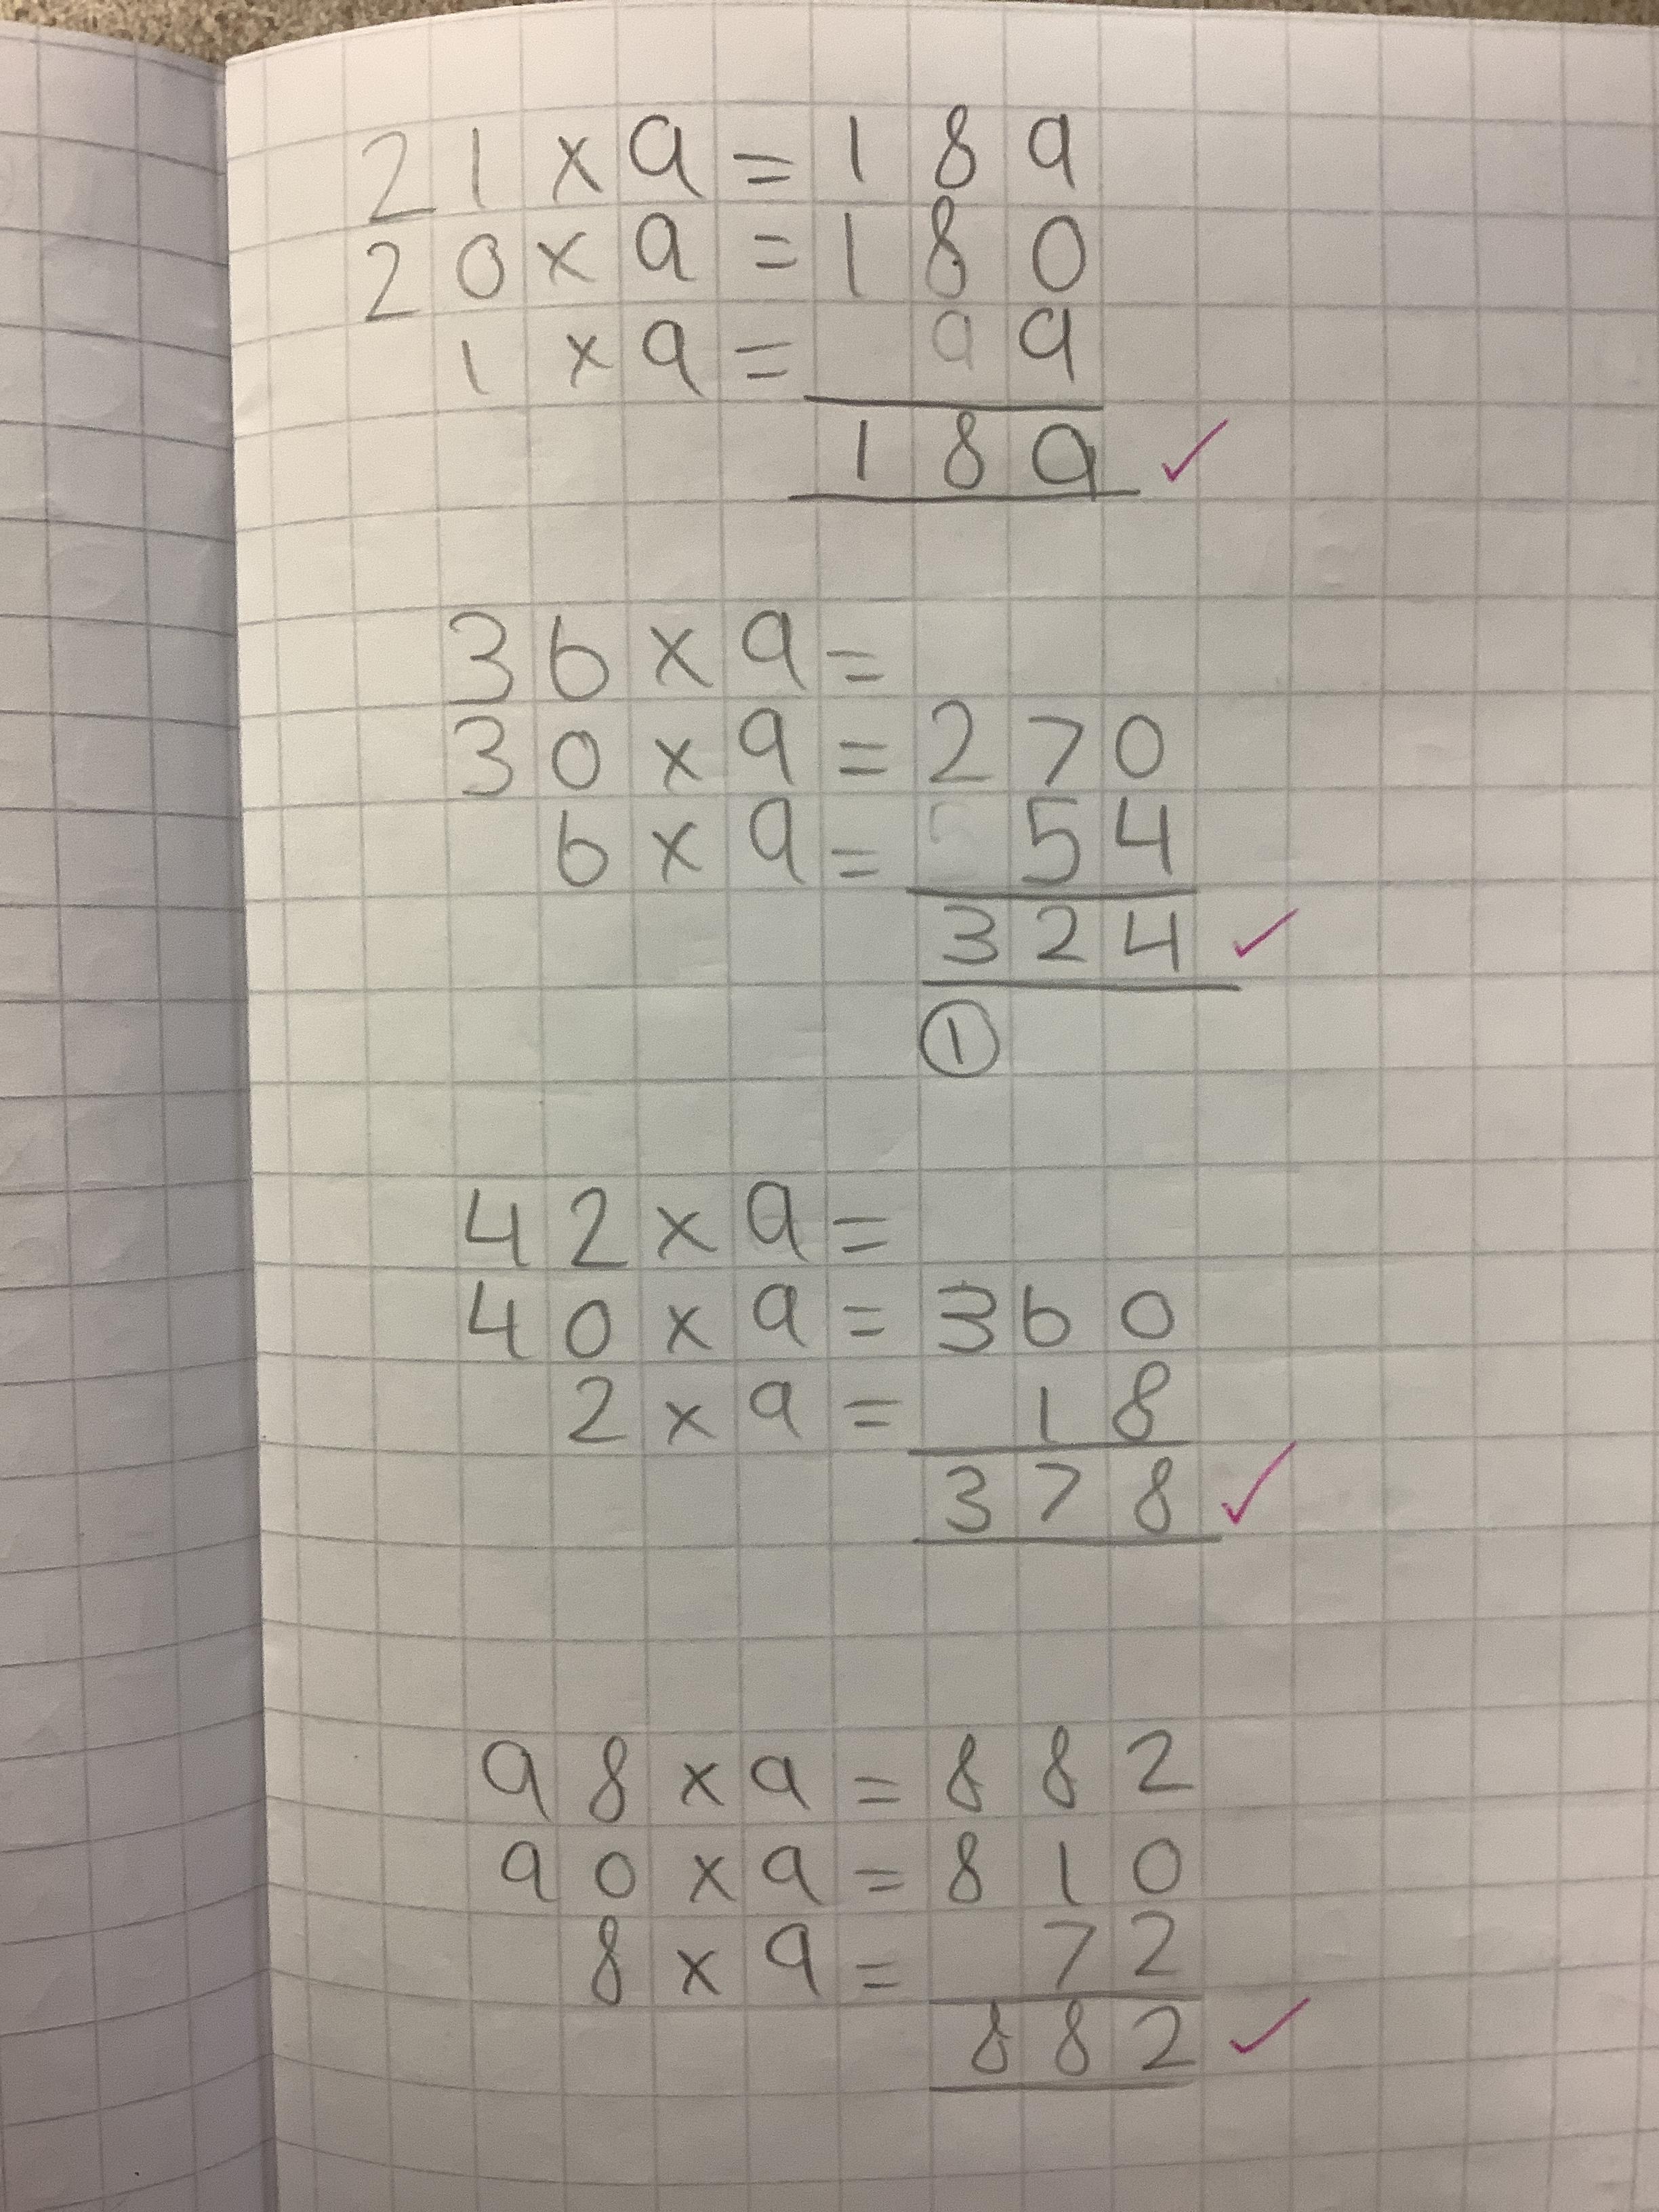 21 × 9 = 189
20 × 9 = 180
1 × 9 = 9
189 ✓
36 × 9 =
30 × 9 = 270
6 × 9 = 54
324 ✓
①
42 × 9 =
40 × 9 = 360
2 × 9 = 18
378 ✓
98 × 9 = 882
90 × 9 = 810
8 × 9 = 72
882 ✓